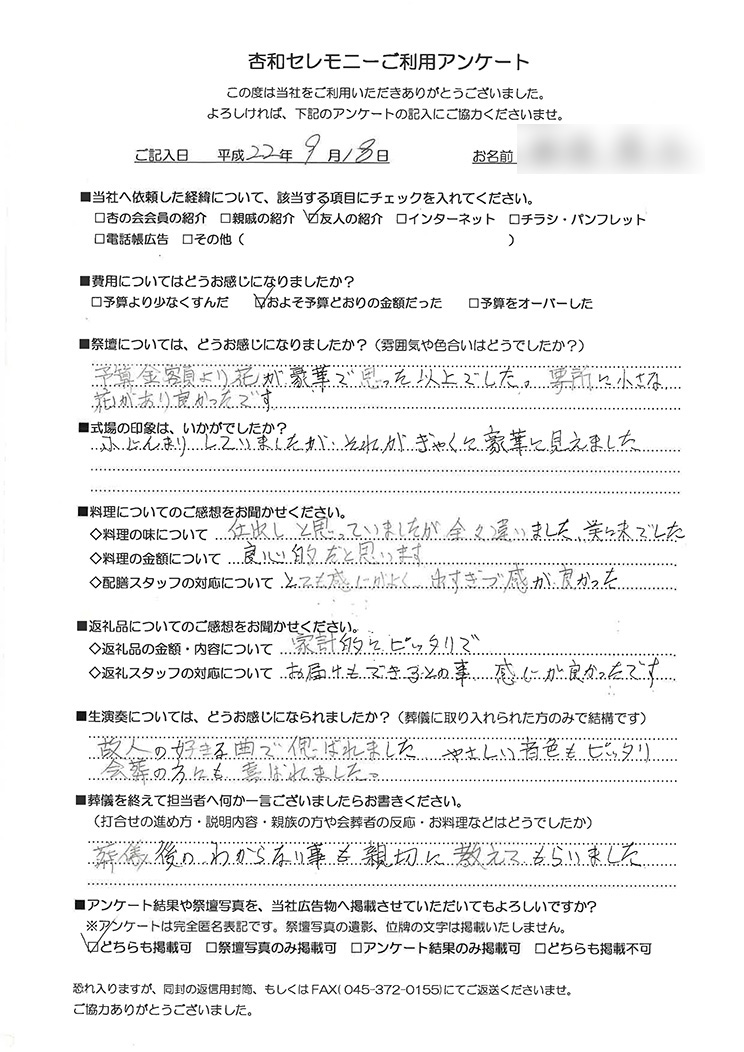 杏和セレモニーご利用アンケート
この度は当社をご利用いただきありがとうございました。
よろしければ、下記のアンケートの記入にご協力くださいませ。
ご記入日 平成22年 9月18日 お名前
■当社へ依頼した経緯について、該当する項目にチェックを入れてください。
□杏の会会員の紹介 □親戚の紹介 ☑友人の紹介 □インターネット □チラシ・パンフレット
□電話帳広告 □その他（ ）
■費用についてはどうお感じになりましたか？
□予算より少なくすんだ ☑およそ予算どおりの金額だった □予算をオーバーした
■祭壇については、どうお感じになりましたか？（雰囲気や色合いはどうでしたか？）
予算金額より花が豪華で思った以上でした。要所に小さな
花があり良かったです
■式場の印象は、いかがでしたか？
こじんまりしていましたが、それがぎゃくに豪華に見えました
■料理についてのご感想をお聞かせください。
◇料理の味について 仕出しと思っていましたが全々違いました、美味でした
◇料理の金額について 良心的だと思います
◇配膳スタッフの対応について とても感じがよく 出すぎづ感が良かった
■返礼品についてのご感想をお聞かせください。
◇返礼品の金額・内容について 家計的にピッタリで
◇返礼スタッフの対応について お届けもできるとの事 感じが良かったです
■生演奏については、どうお感じになられましたか？（葬儀に取り入れられた方のみで結構です）
故人の好きな曲で偲ばれました やさしい音色もピッタリ
会葬の方にも喜ばれました。
■葬儀を終えて担当者へ何か一言ございましたらお書きください。
（打合せの進め方・説明内容・親族の方や会葬者の反応・お料理などはどうでしたか）
葬儀後のわからない事も親切に教えてもらいました
■アンケート結果や祭壇写真を、当社広告物へ掲載させていただいてもよろしいですか？
※アンケートは完全匿名表記です。祭壇写真の遺影、位牌の文字は掲載いたしません。
☑どちらも掲載可 □祭壇写真のみ掲載可 □アンケート結果のみ掲載可 □どちらも掲載不可
恐れ入りますが、同封の返信用封筒、もしくはFAX(045-372-0155)にてご返送くださいませ。
ご協力ありがとうございました。